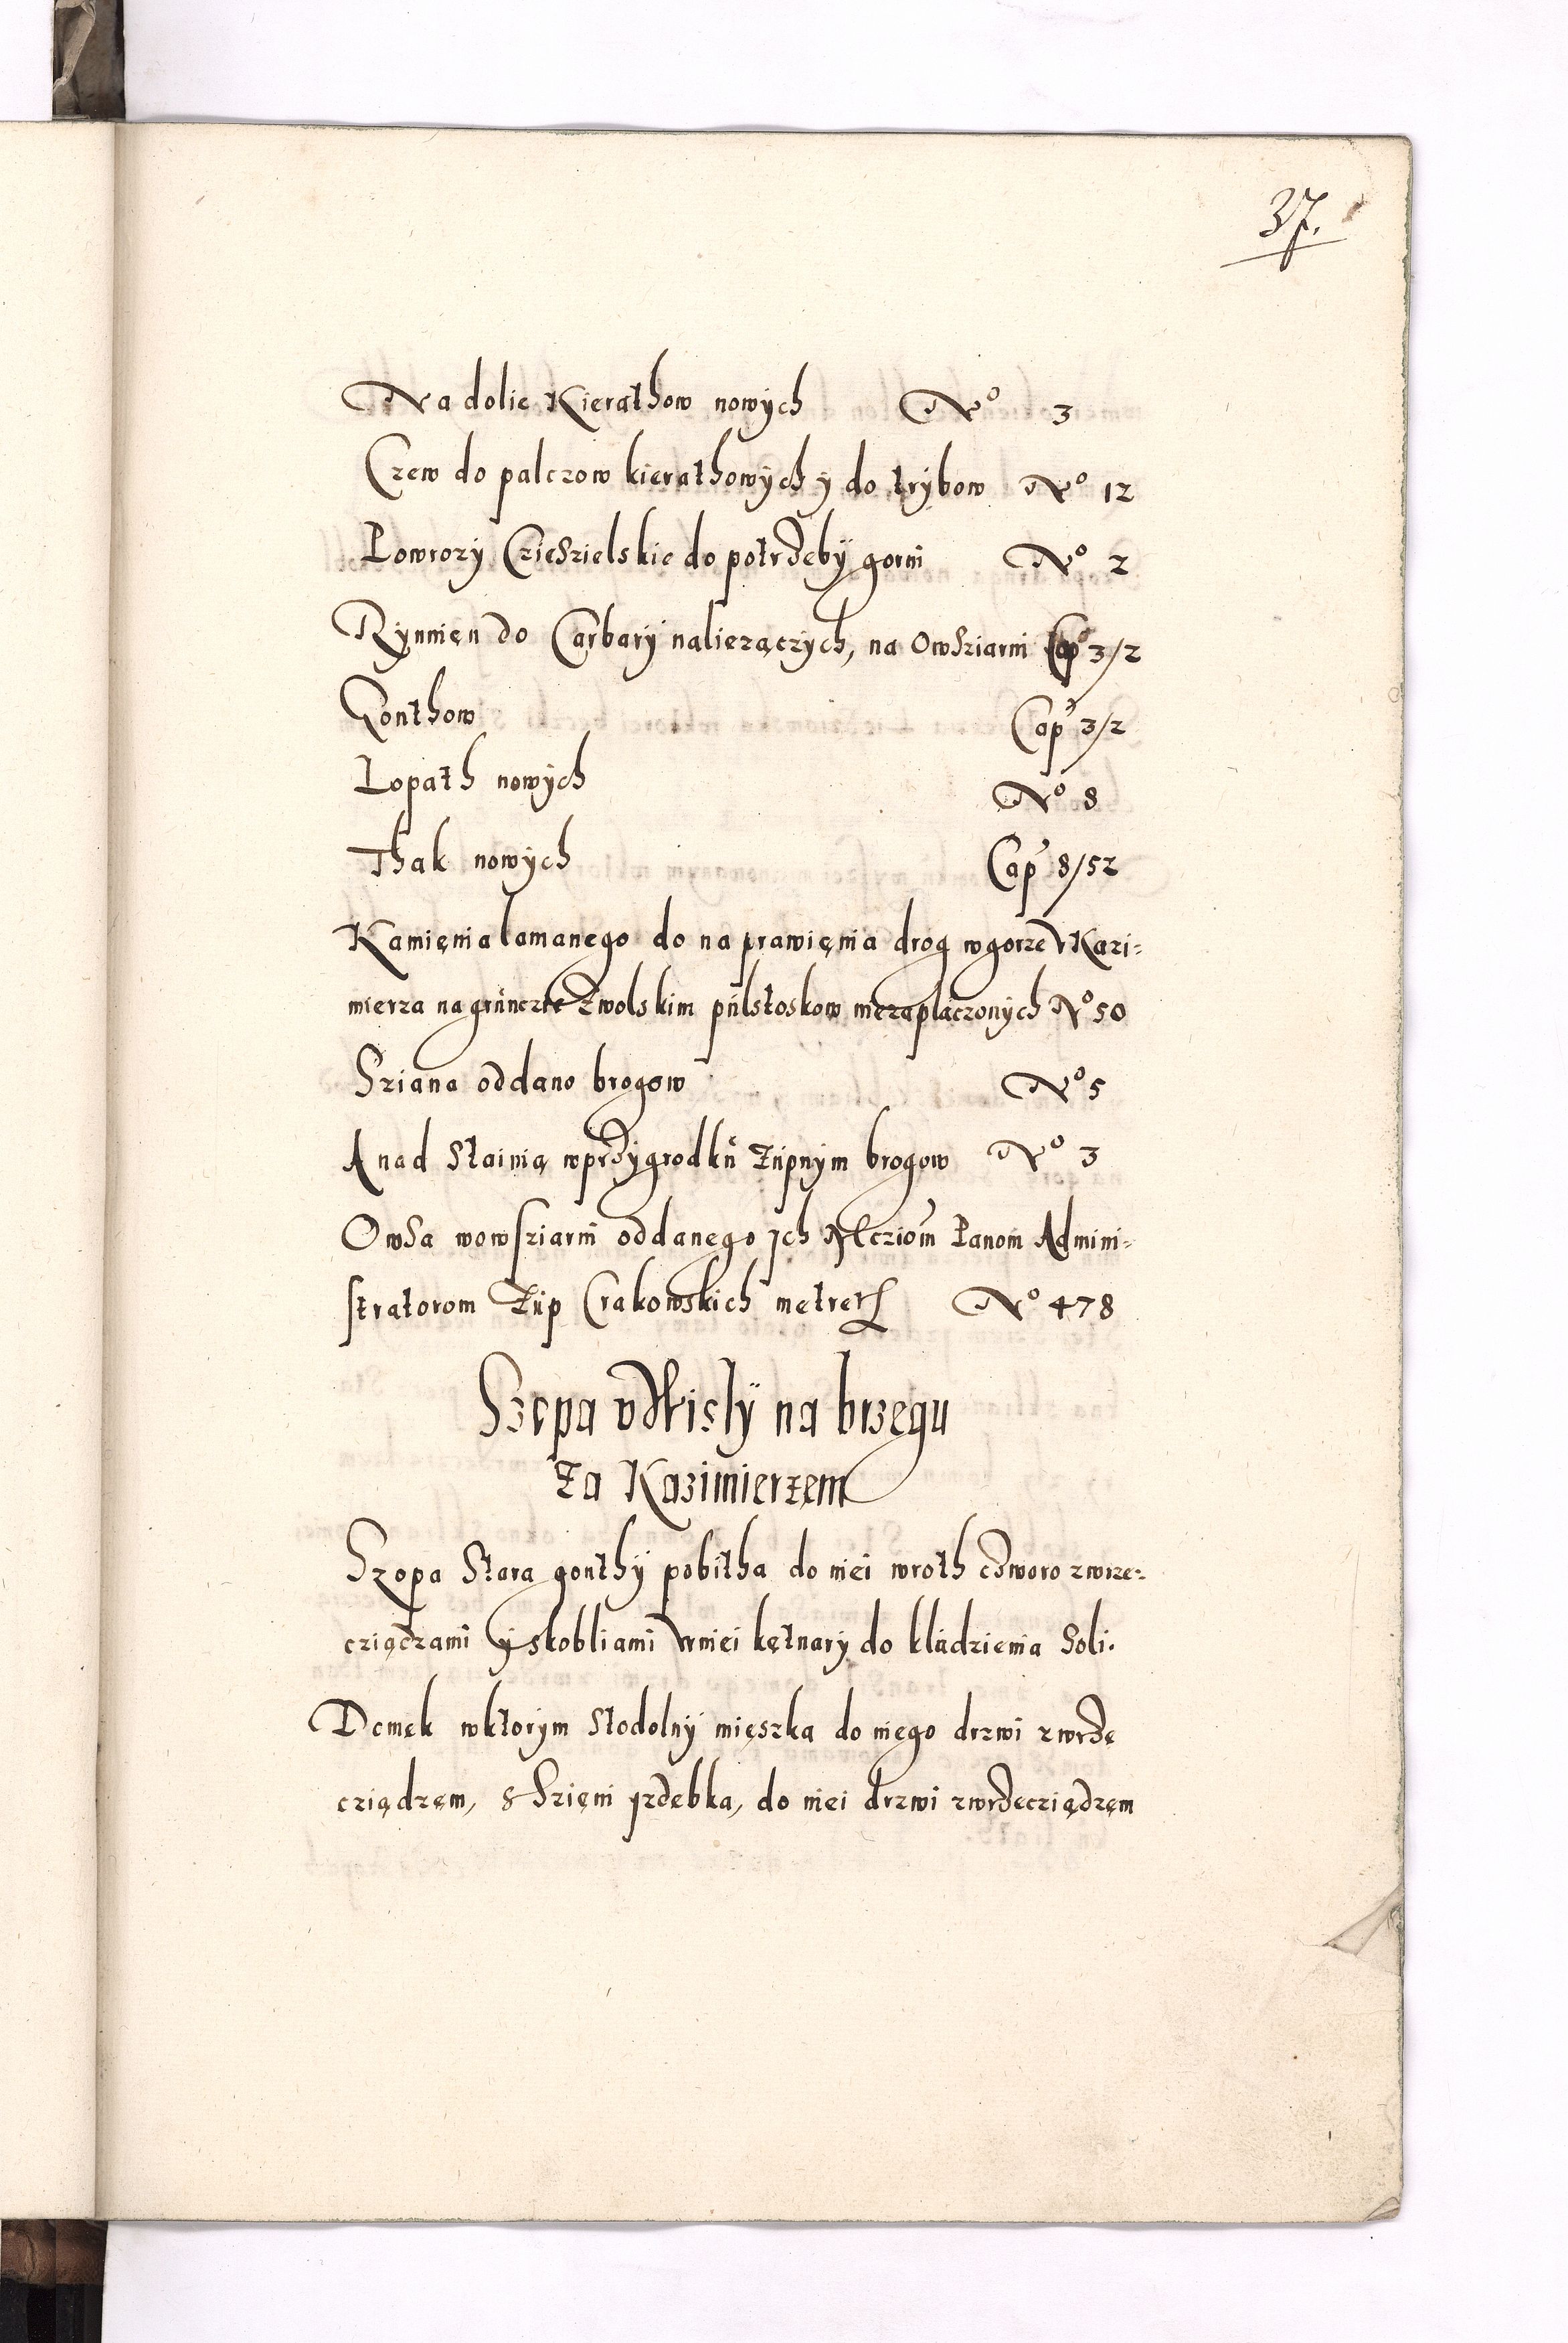 37.
Na dolie Kierathow nowych No 3
Czew do palczow kierathowych y do trybow No 12
Powrozy Cziesielskie do potrzeby gorni No 2
Rynnięn do Carbary nalierączych, na Owsziarni Cap 3/2
Gonthow Cap 3/2
Lopath nowych No 8
Thak nowych Cap 8/52
Kamięnia lamanego do naprawięnia drog wgorze v Kazi-
mierza na grunczie Zwolskim pulstoskow niezaplaczonych No 50
Sziana oddano brogow No 5
A nad Stainią wprzygrodku Zupnym brogow No 3
Owsa wowsziarni oddanego ich Mcziom Panom Admini-
stratorom Zup Crakowskich metret No 478
Szopa v Wisly na brzegu
za Kazimierzem
Szopa Stara gonthy pobitha do niei wroth czworo zwrze-
cziądzami y skobliami wniei kętnary do kladzienia Soli.
Domek wktorym Stodolny mięszka do niego drzwi zwrze
cziądzęm, z Szięni yzdebka, do niei drzwi zwrzecziądzęm